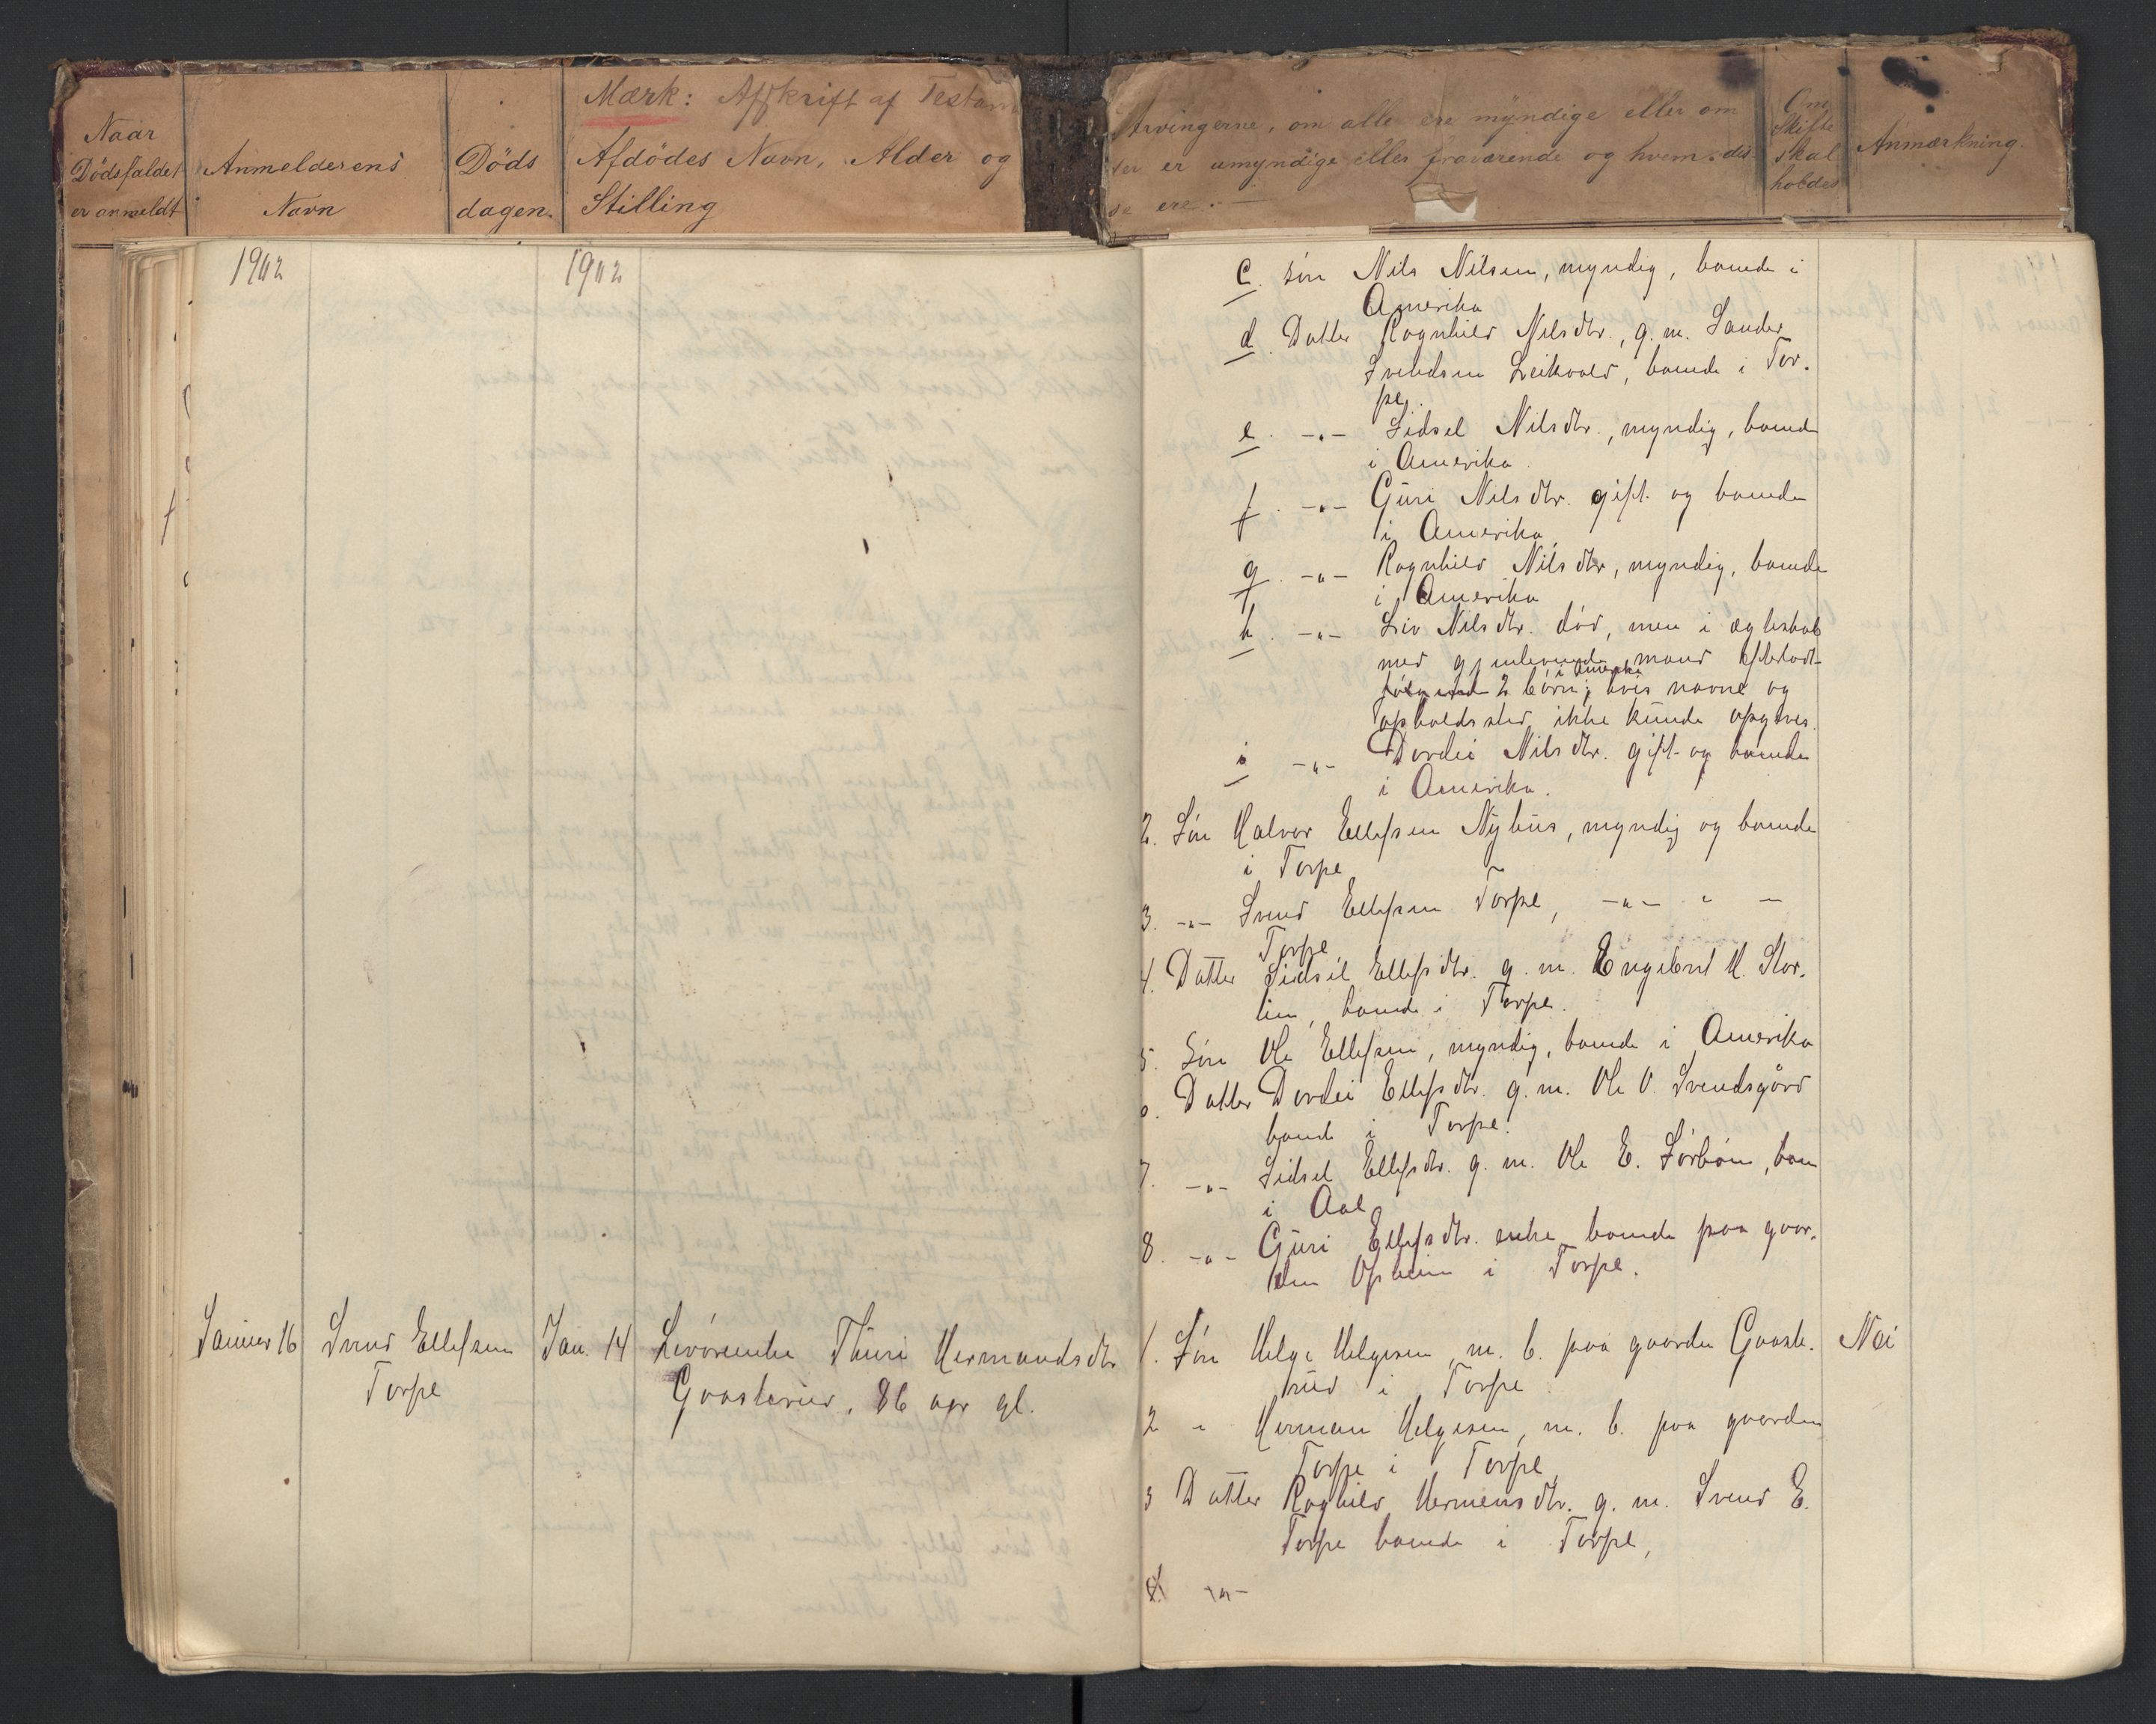 Mærk: Afskrift af Testam
Naar
Dödsfaldet
er anmeldt
Anmelderens
Navn
Döds
dagen.
Afdödes Navn, Alder og
Stilling
Arvingerne, om alle ere myndige eller om
der er umyndige eller fraværende og hvem dis-
se ere. —
Om
Skifte
skal
holdes
Anmærkning.
1902
1902
c. Søn Nils Nilsen, myndig, boende i
Amerika
d. Datter Ragnhild Nilsdtr., g. m. Sander
Svendsen Leikvold, boende i Tor-
pe.
e. -"- Sidsel Nilsdtr., myndig, boende
i Amerika
f. -"- Guri Nilsdtr. gift og boende
i Amerika
g. -"- Ragnhild Nilsdtr, myndig, boende
i Amerika
h. -"- Liv Nilsdtr. død, men i ægteskab
med gjenlevende mand efterladt
i Amerika
følgende 2 børn, hvis navne og
opholdssted ikke kunde opgives.
i -"- Dordei Nilsdtr. gift og boende
i Amerika.
2. Søn Halvor Ellefsen Nyhus, myndig og boende
i Torpe
3. -"- Svend Ellefsen Torpe, -"- " -
Torpe
4. Datter Sidsil Ellefsdtr. g. m. Engebret H. Stor-
lien, boende i Torpe.
5. Søn Ole Ellefsen, myndig, boende i Amerika
6. Datter Dordei Ellefsdtr. g. m. Ole O. Svendsgård
boende i Torpe.
7. -"- Sidsel Ellefsdtr. g. m. Ole E. Sørbøen, boen
i Aal
8. -"- Guri Ellefsdtr. enke boende paa gaar-
den Opheim i Torpe.
Januar 16
Svend Ellefsen
Torpe
Jan. 14
Livørenke Thuri Hermandsdtr
Graaslerud, 86 aar gl.
1. Søn Helge Helgesen, m. b. paa gaarden Graasle-
rud i Torpe
Nei
2 " Herman Helgesen, m. b. paa gaarden
Torpe i Torpe
3 Datter Raghild Hermensdtr. g. m. Svend E.
Torpe boende i Torpe,
4. -"-